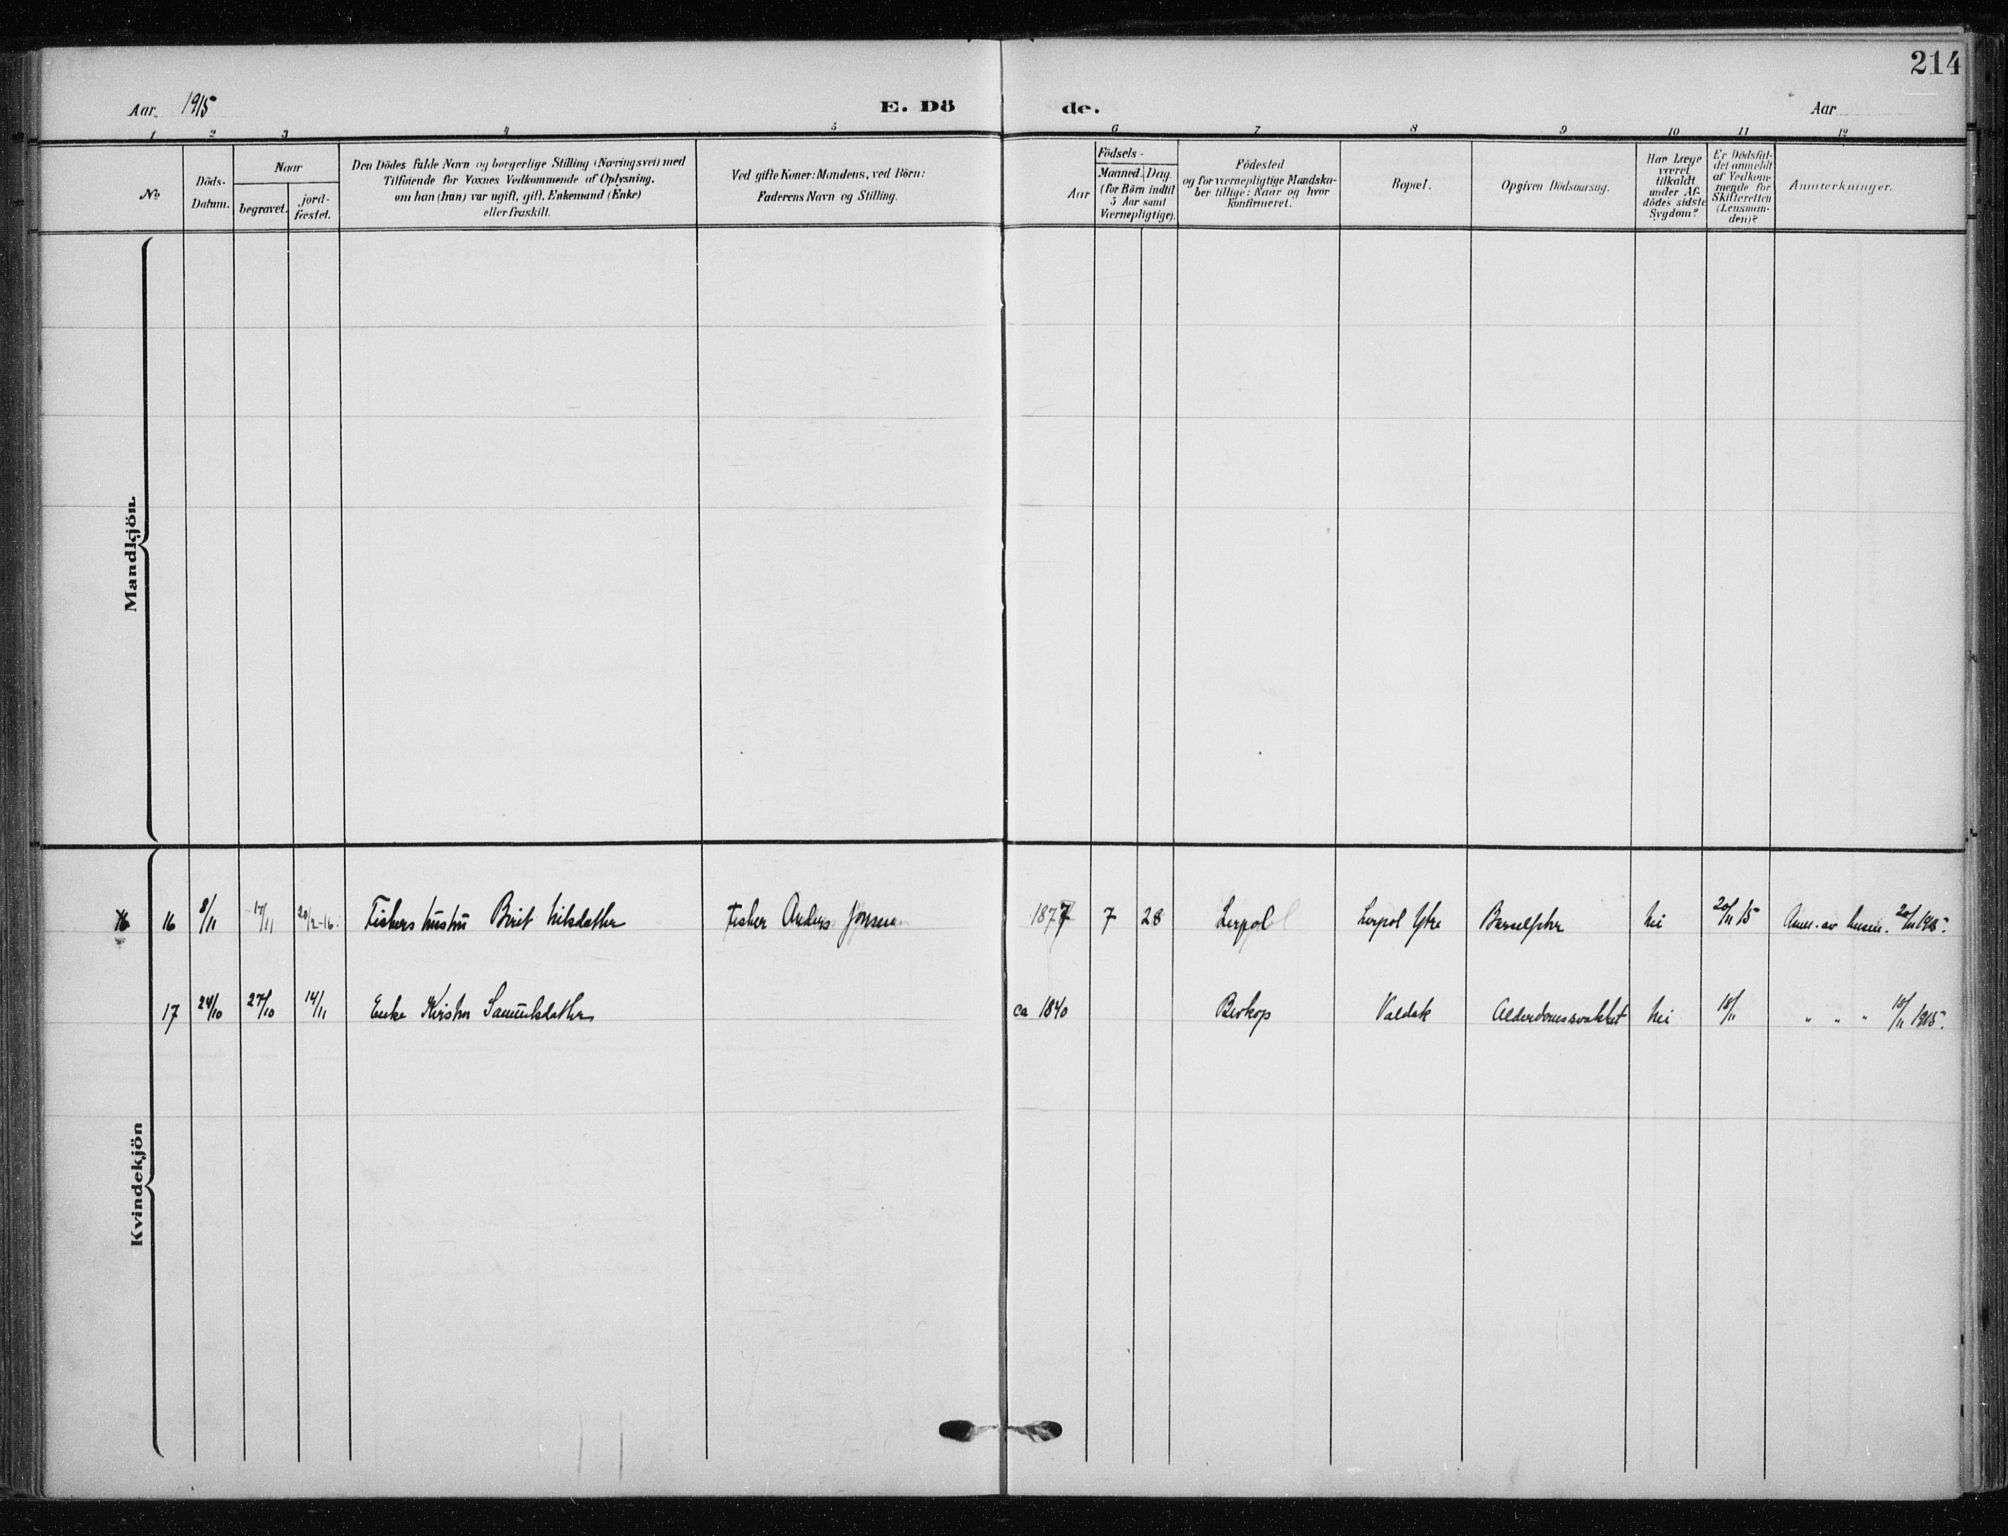 214
Aar 1915 E. Dö de. Aar
1 2 3 4 5 6 7 8 9 10 11 12
No.
Döds-Datum.
Naar
begravet.
jord-fæstet.
Den Dödes fulde Navn og borgerlige Stilling (Næringsvei) med
Tilföiende for Voxnes Vedkommende af Oplysning.
om han (hun) var ugift, gift, Enkemand (Enke)
eller fraskilt.
Ved gifte Koner: Mandens, ved Börn:
Faderens Navn og Stilling.
Födsels-
Aar
Maaned. Dag.
(for Börn indtil
5 Aar samt
Værnepligtige).
Födested
og for værnepligtige Mandska-
ber tillige: Naar og hvor
Konfirmeret.
Bopæl.
Opgiven Dödsaarsag.
Har Læge
været
tilkaldt
under Af-
dödes sidste
Sygdom?
Er Dödsfal-
det anmeldt
af Vedkom-
mende for
Skifteretten
(Lensman-
den)?
Anmærkninger.
Mandkjön.
16 16 8/11 17/11 20/2-16. Fiskers hustru Berit Nilsdatter Fisker Anders Jonsen 1877 7 28 Lerpol Lerpol Ytre Barselfeber Nei 20/11 15 Anm. av 20/11 1915.
17 24/10 27/10 14/11 Enke Kirsten Samuelsdatter ca 1840 Beskop Valdak Alderdomssvakhet Nei 18/11 " " " 18/11 1915.
Kvindekjön